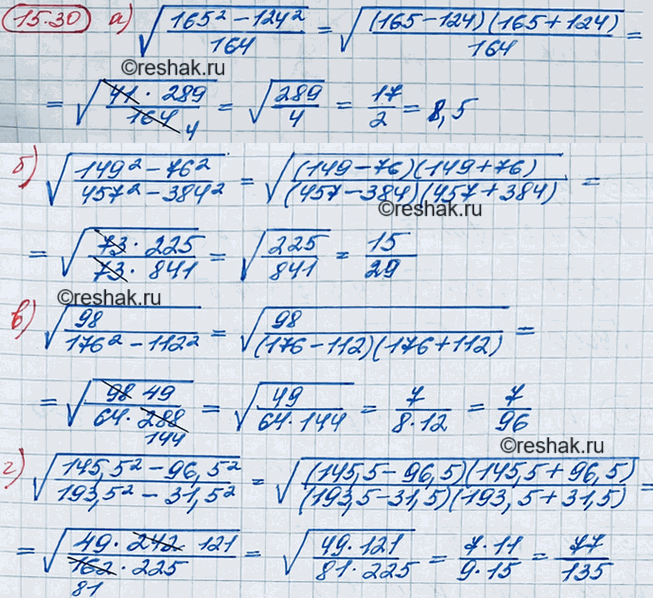 15.30 а) √((165² − 124²)/164) = √((165−124)(165+124)/164) =
©reshak.ru
= √(41 · 289/164 4) = √(289/4) = 17/2 = 8,5
б) √((149² − 76²)/(457² − 384²)) = √((149−76)(149+76)/(457−384)(457+384)) =
©reshak.ru
= √(73 · 225/73 · 841) = √(225/841) = 15/29
©reshak.ru
в) √(98/(176² − 112²)) = √(98/(176−112)(176+112)) =
= √(98 49/64 · 288 144) = √(49/64·144) = 7/8·12 = 7/96
©reshak.ru
г) √((145,5² − 96,5²)/(193,5² − 31,5²)) = √((145,5−96,5)(145,5+96,5)/(193,5−31,5)(193,5+31,5)) =
= √(49 · 242 121/162 · 225 81) = √(49·121/81·225) = 7·11/9·15 = 77/135